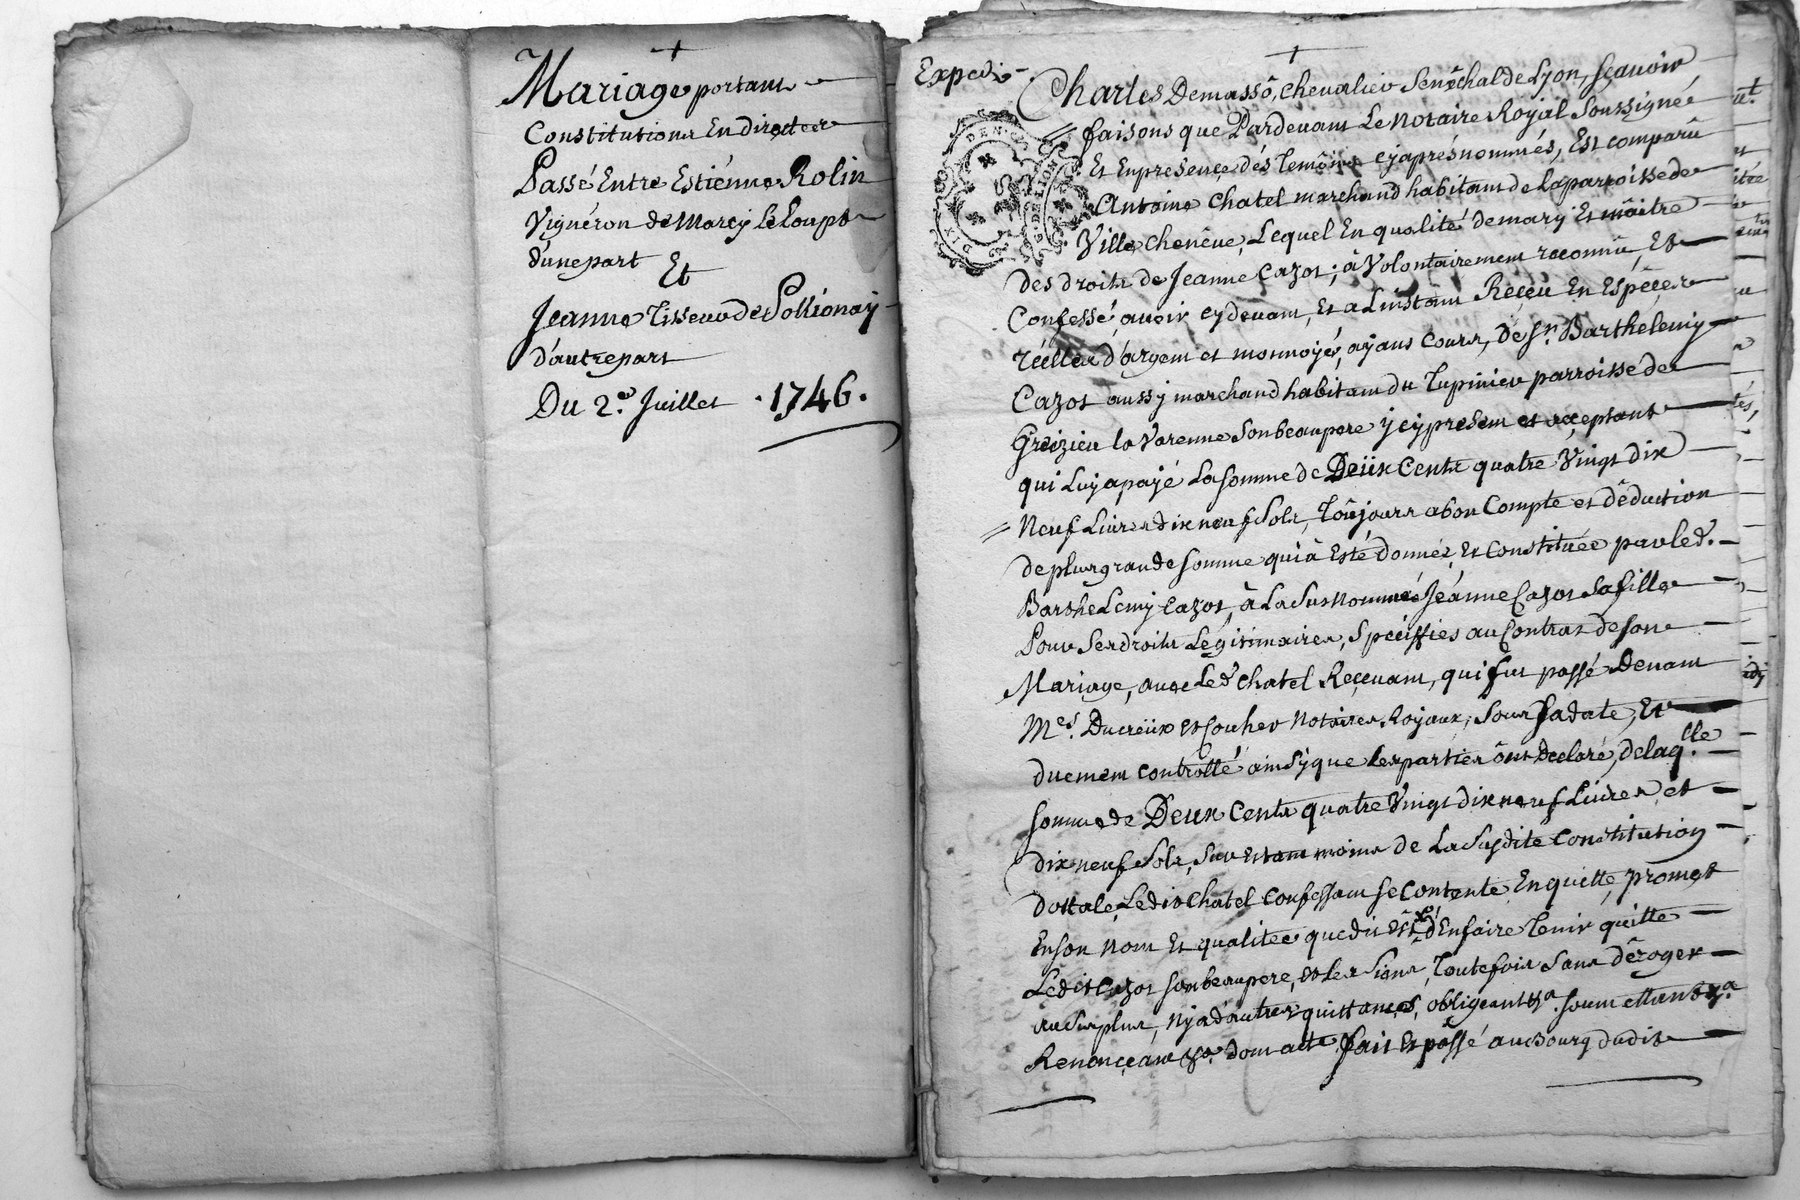 Mariage portant
Constitution En Directe
Passé Entre Estiénne Rolin
Vignéron de Marcÿ Le Loup
d'une part
Et
Jeanne Tisseur de Pollionaÿ
d'autre part
Du 2.e Juillet . 1746 .
Expedi
Charles Demassô, Chevalier Senéchal de Lyon, sçavoir
faisons que Pardevant Le Notaire Royal Soussigné
Et En presence dés Temôins cy aprés nommés, Est comparû
Antoine Chatel marchand habitant de la parroisse de
DEN.G
DE LION
DIX
Ville Chenêve, Lequel En qualité de marÿ Et mâitre
des droits de Jeanne Cazot ; à Volontairement reconnû, Et
Confessé, avoir cy devant, Et a L'instant Reçeu En Espêces
réelles d'argent et monnoyé, ayant Cours, De Sr. Barthelemy
Cazot aussy marchand habitant du Tupinier parroisse de
Greizieu la Varenne Son beaupere ÿ cy present et acçeptant
qui Luy a payé La somme de Deüx Cents quatre Vingt dix
Neuf Livres dix neuf Sols, Toûjours a bon Compte et dêduction
de plus grande somme qui à Esté donnée, Et Constituée par led.
Barthelemy Cazot, à La Susnommée Jeanne Cazot Sa fille
Pour Ses droits Légitimaires, Spéciffies au Contrat de son
Mariage, avec Led. Chatel Reçevant, qui fut passé Devant
Mes. Ducreüx et Souher Notaires Royaux, Sous Sa date, Et
duement controllé ainsÿ que les parties ônt Declaré, de laq.lle
somme de Deux Cents quatre Vingt dix neuf Livres et
dix neuf Sols, Sur Et tant moins de La Susdite Constitution
dottale, Ledit Chatel Confessant se Contente En quitte, promet
En son nom Et qualitée que dit Est d'En faire Tenir quitte
Ledit Cazot son beaupere, et Les Siens, Toutefois Sans dêroger
au Surplus, Ny a d'autres quittances, obligeant &a. soumettant &a.
Renonçant &a. dont acte. fait Et passé au Bourg dudit